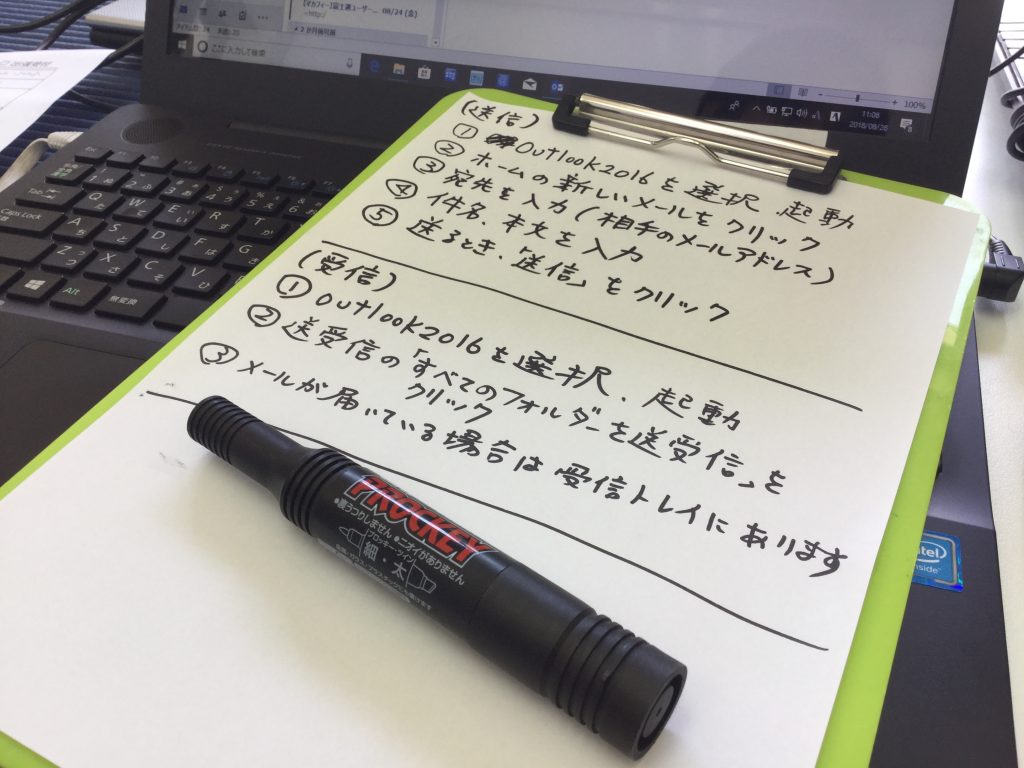 08/24 (金)
ここに入力して検索
100%
11:08
2018/08/26
(送信)
① Outlook2016を選択、起動
② ホームの新しいメールをクリック
③ 宛先を入力(相手のメールアドレス)
④ 件名、本文を入力
⑤ 送るとき、「送信」をクリック
(受信)
① Outlook2016を選択、起動
② 送受信の「すべてのフォルダーを送受信」を
クリック
③ メールが届いている場合は受信トレイにあります
PROCKEY
•裏うつりしません •ニオイがありません
プロッキー・ツイン
細・太
Caps Lock
Alt
無変換
intel
inside